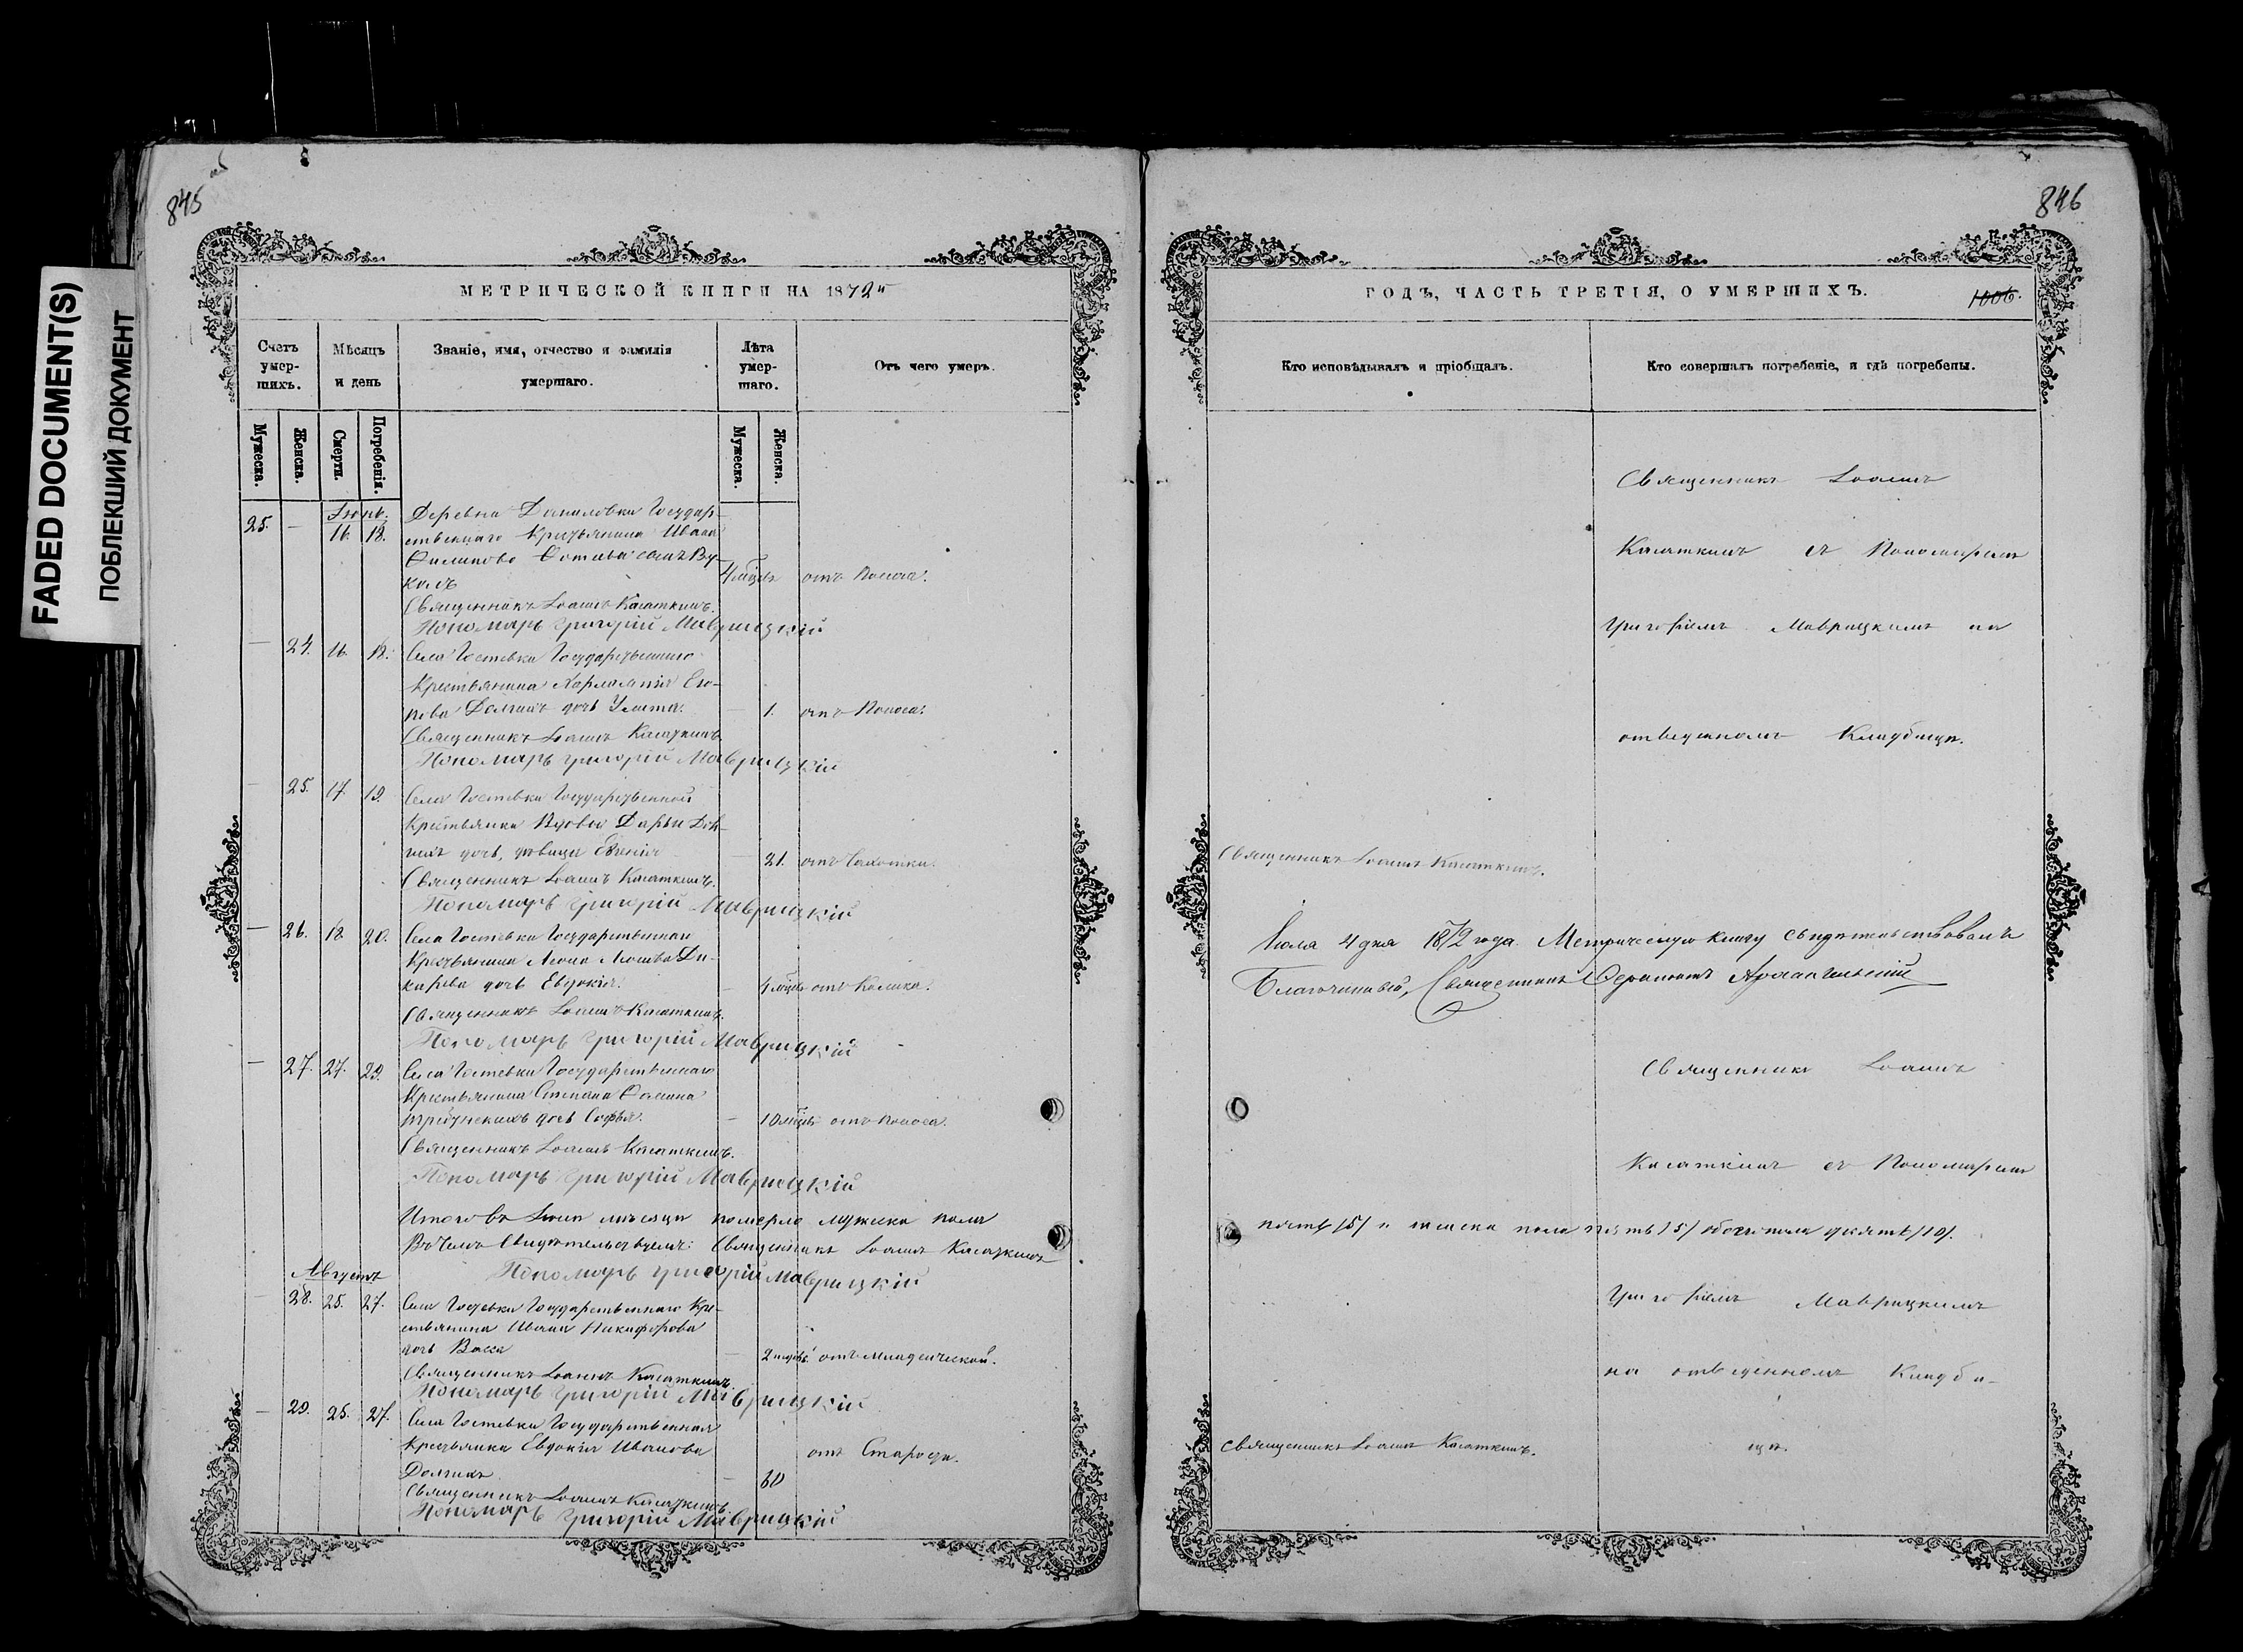 FADED DOCUMENT(S)
ПОБЛЕКШИЙ ДОКУМЕНТ
845
МЕТРИЧЕСКОЙ КНИГИ НА 1872й
Счетъ умер-шихъ.
Мѣсяцъ и день
Званіе, имя, отчество и фамилія умершаго.
Лѣта умер-шаго.
Отъ чего умеръ.
Мужеска.
Женска.
Смерти.
Погребенія.
Мужеска.
Женска.
Іюнь.
25. — 16. 18. Деревни Даниловки Государ-
ственнаго Крестьянина Ивана
Филипова сынъ Ву-
колъ 4 мѣсяц. отъ Поноса.
Священникъ Іоаннъ Касаткинъ.
Пономарь Григорій Маврицкій
— 24. 16. 18. Села Гостевки Государственнаго
Крестьянина Харлампія Его-
рова Долгихъ дочь Улита. — 1. отъ Поноса.
Священникъ Іоаннъ Касаткинъ
Пономарь Григорій Маврицкій
— 25. 17. 19. Села Гостевки Государственной
Крестьянки Вдовы Дарьи Дол-
гихъ дочь, девица Евгенія — 21. отъ Чахотки.
Священникъ Іоаннъ Касаткинъ.
Пономарь Григорій Маврицкій
— 26. 18. 20. Села Гостевки Государственнаго
Крестьянина
дочь Евдокія. — отъ Колики.
Священникъ Іоаннъ Касаткинъ.
Пономарь Григорій Маврицкій
— 27. 27. 29. Села Гостевки Государственнаго
Крестьянина Степана Фомина
Трибунскихъ дочь Софья. — 10 мѣсяц. отъ Поноса.
Священникъ Іоаннъ Касаткинъ.
Пономарь Григорій Маврицкій
Итого въ Іюнѣ мѣсяцѣ померло мужеска пола
Въ чемъ свидѣтельствуемъ: Священникъ Іоаннъ Касаткинъ
Пономарь Григорій Маврицкій
Августъ
— 28. 25. 27. Села Гостевки Государственнаго Кре-
стьянина Ивана Никифорова
дочь Васса — 2 недѣл. отъ младенческой.
Священникъ Іоаннъ Касаткинъ.
Пономарь Григорій Маврицкій
— 29. 25. 27. Села Гостевки Государственная
Крестьянка Евдокія Иванова
Долгихъ — 60 отъ Старости.
Священникъ Іоаннъ Касаткинъ.
Пономарь Григорій Маврицкій
846
ГОДЪ, ЧАСТЬ ТРЕТІЯ, О УМЕРШИХЪ.
1006.
Кто исповѣдывалъ и пріобщалъ.
Кто совершалъ погребеніе, и гдѣ погребены.
Священникъ Іоаннъ
Касаткинъ съ Пономаремъ
Григоріемъ Маврицкимъ на
отведенномъ Кладбищѣ.
Священникъ Іоаннъ Касаткинъ.
Іюля 4 дня 1872 года. Метрическую книгу свидѣтельствовалъ
Благочинный, Священникъ Ѳерапонтъ Архангельскій
Священникъ Іоаннъ
Касаткинъ съ Пономаремъ
пять /5/ и женска пола пять /5/ обоего пола десять /10/.
Григоріемъ Маврицкимъ
на отведенномъ Кладби-
щѣ.
Священникъ Іоаннъ Касаткинъ.